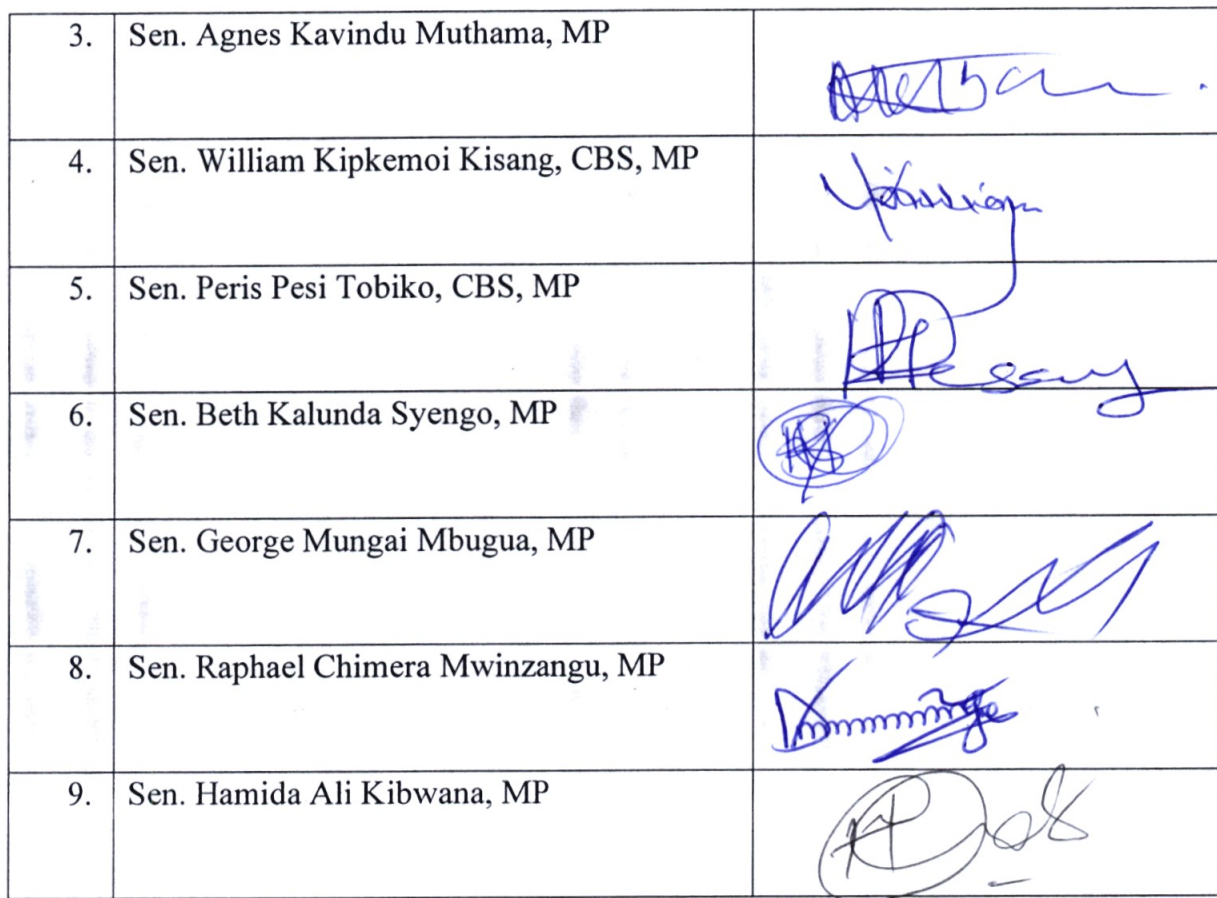 3. Sen. Agnes Kavindu Muthama, MP
4. Sen. William Kipkemoi Kisang, CBS, MP
5. Sen. Peris Pesi Tobiko, CBS, MP
6. Sen. Beth Kalunda Syengo, MP
7. Sen. George Mungai Mbugua, MP
8. Sen. Raphael Chimera Mwinzangu, MP
9. Sen. Hamida Ali Kibwana, MP